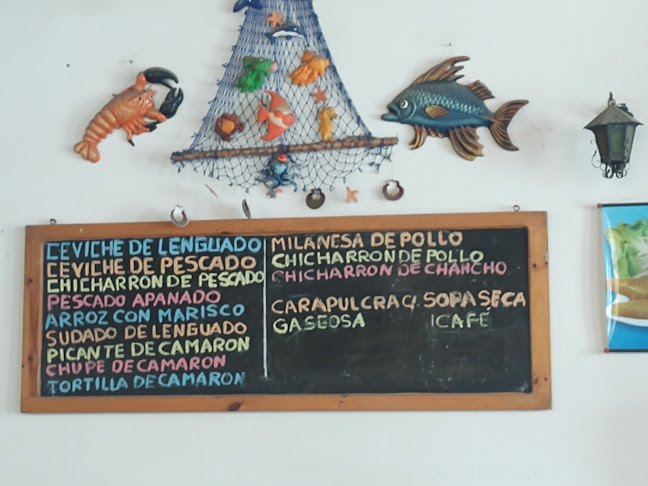 CEVICHE DE LENGUADO
CEVICHE DE PESCADO
CHICHARRON DE PESCADO
PESCADO APANADO
ARROZ CON MARISCO
SUDADO DE LENGUADO
PICANTE DE CAMARON
CHUPE DE CAMARON
TORTILLA DE CAMARON
MILANESA DE POLLO
CHICHARRON DE POLLO
CHICHARRON DE CHANCHO
CARAPULCRA C/. SOPA SECA
GASEOSA CAFÉ